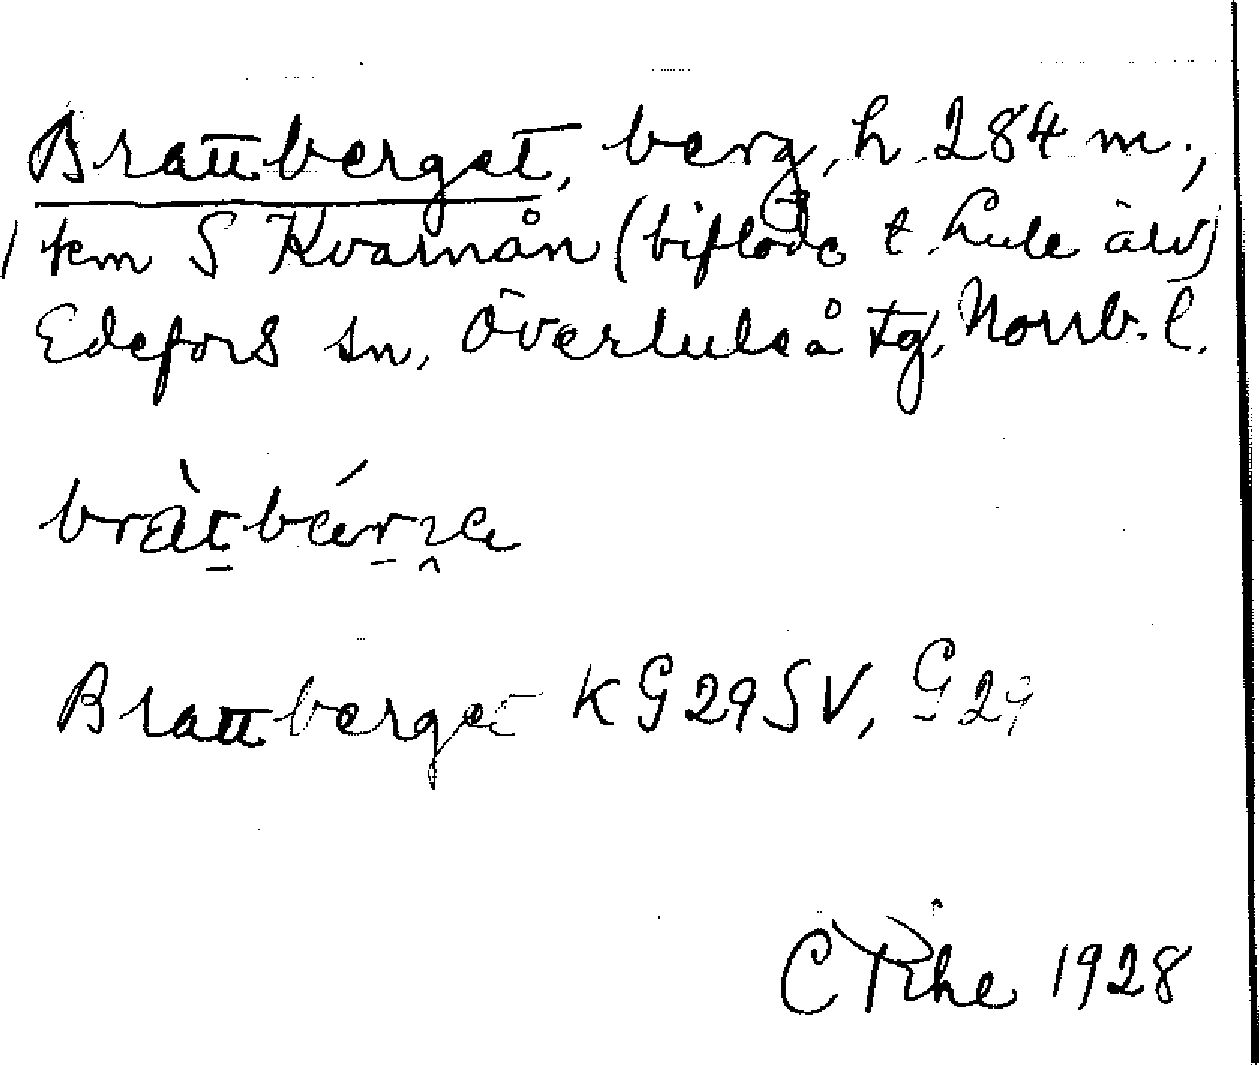 Brattberget, berg, h. 284 m.,
1 km S Kvarnån (biflod t. Lule älv)
Edefors sn, Överluleå tg, Norrb. l.
Brattberget KG29SV, G29
C Pihe 1928